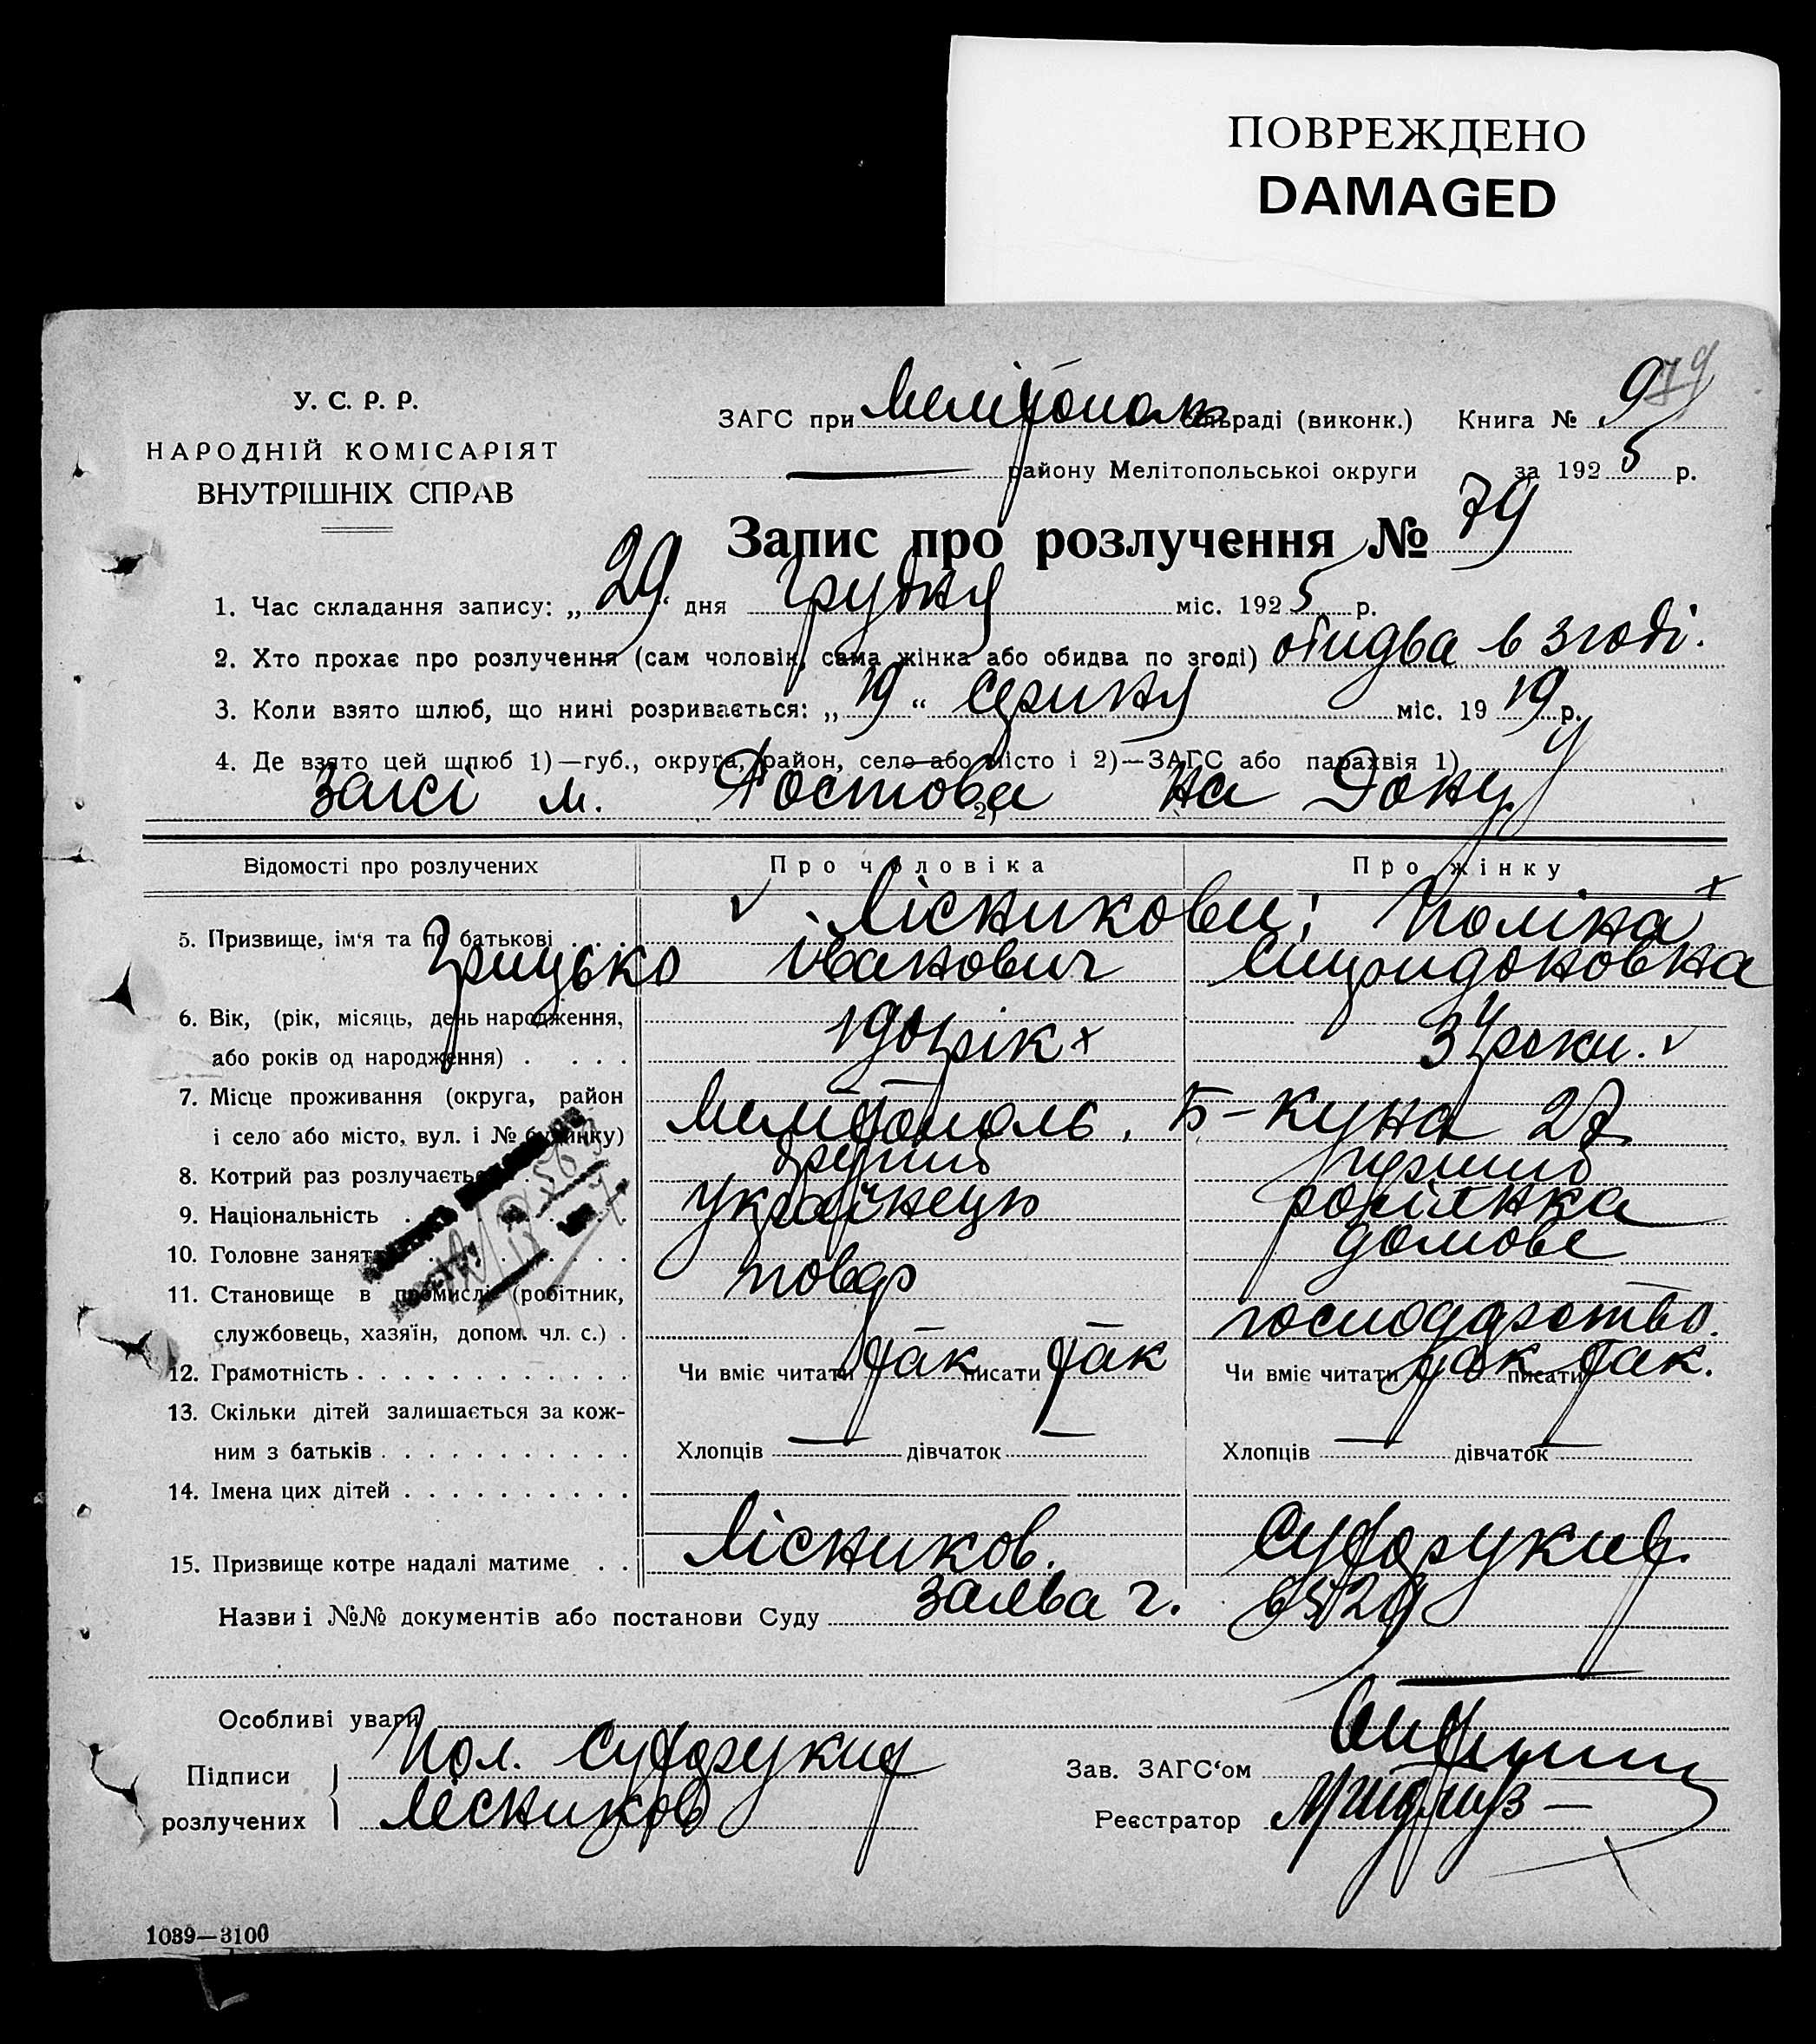 ПОВРЕЖДЕНО
DAMAGED
79
У. С. Р. Р.
НАРОДНІЙ КОМІСАРІЯТ
ВНУТРІШНІХ СПРАВ
ЗАГС при Мелітополь раді (виконк.) Книга № 9
району Мелітопольської округи за 1925 р.
Запис про розлучення № 79
1. Час складання запису: „29“ дня Грудня міс. 1925 р.
2. Хто прохає про розлучення (сам чоловік, сама жінка або обидва по згоді) обидва в згоді.
3. Коли взято шлюб, що нині розривається: „19“ Серпня міс. 1919 р.
4. Де взято цей шлюб 1)—губ., округа, район, село або місто і 2)—ЗАГС або парахвія 1)
Загсі м. Ростова 2) на Дону
Відомості про розлучених Про чоловіка Про жінку
5. Призвище, ім‘я та по батькові . . . Лісникови; Поліна
Грицько Іванович Спиридоновна
6. Вік, (рік, місяць, день народження,
або років од народження) . . . . рік х роки. v
7. Місце проживання (округа, район
і село або місто, вул. і № будинку) Мелітополь, Б-Куна 27
8. Котрий раз розлучається другий перший
9. Національність . українець росіянка
10. Головне занят домове
11. Становище в промислі (робітник, повар
службовець, хазяїн, допом. чл. с.) . господарство.
12. Грамотність . . . . . . . . . . . . Чи вміє читати так писати так Чи вміє читати так писати так.
13. Скільки дітей залишається за кож-
ним з батьків . . . . . . . . . . . Хлопців — дівчаток — Хлопців — дівчаток —
14. Імена цих дітей . . . . . . . . . .
15. Призвище котре надалі матиме . . Лісников.
Назви і №№ документів або постанови Суду заява ч.
Особливі уваги
Підписи Пол.
розлучених Лісников
Зав. ЗАГС‘ом
Реєстратор
1039—3100